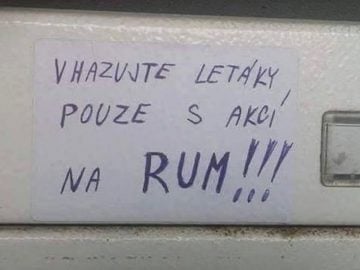 VHAZUJTE LETÁKY,
POUZE S AKCÍ
NA RUM!!!